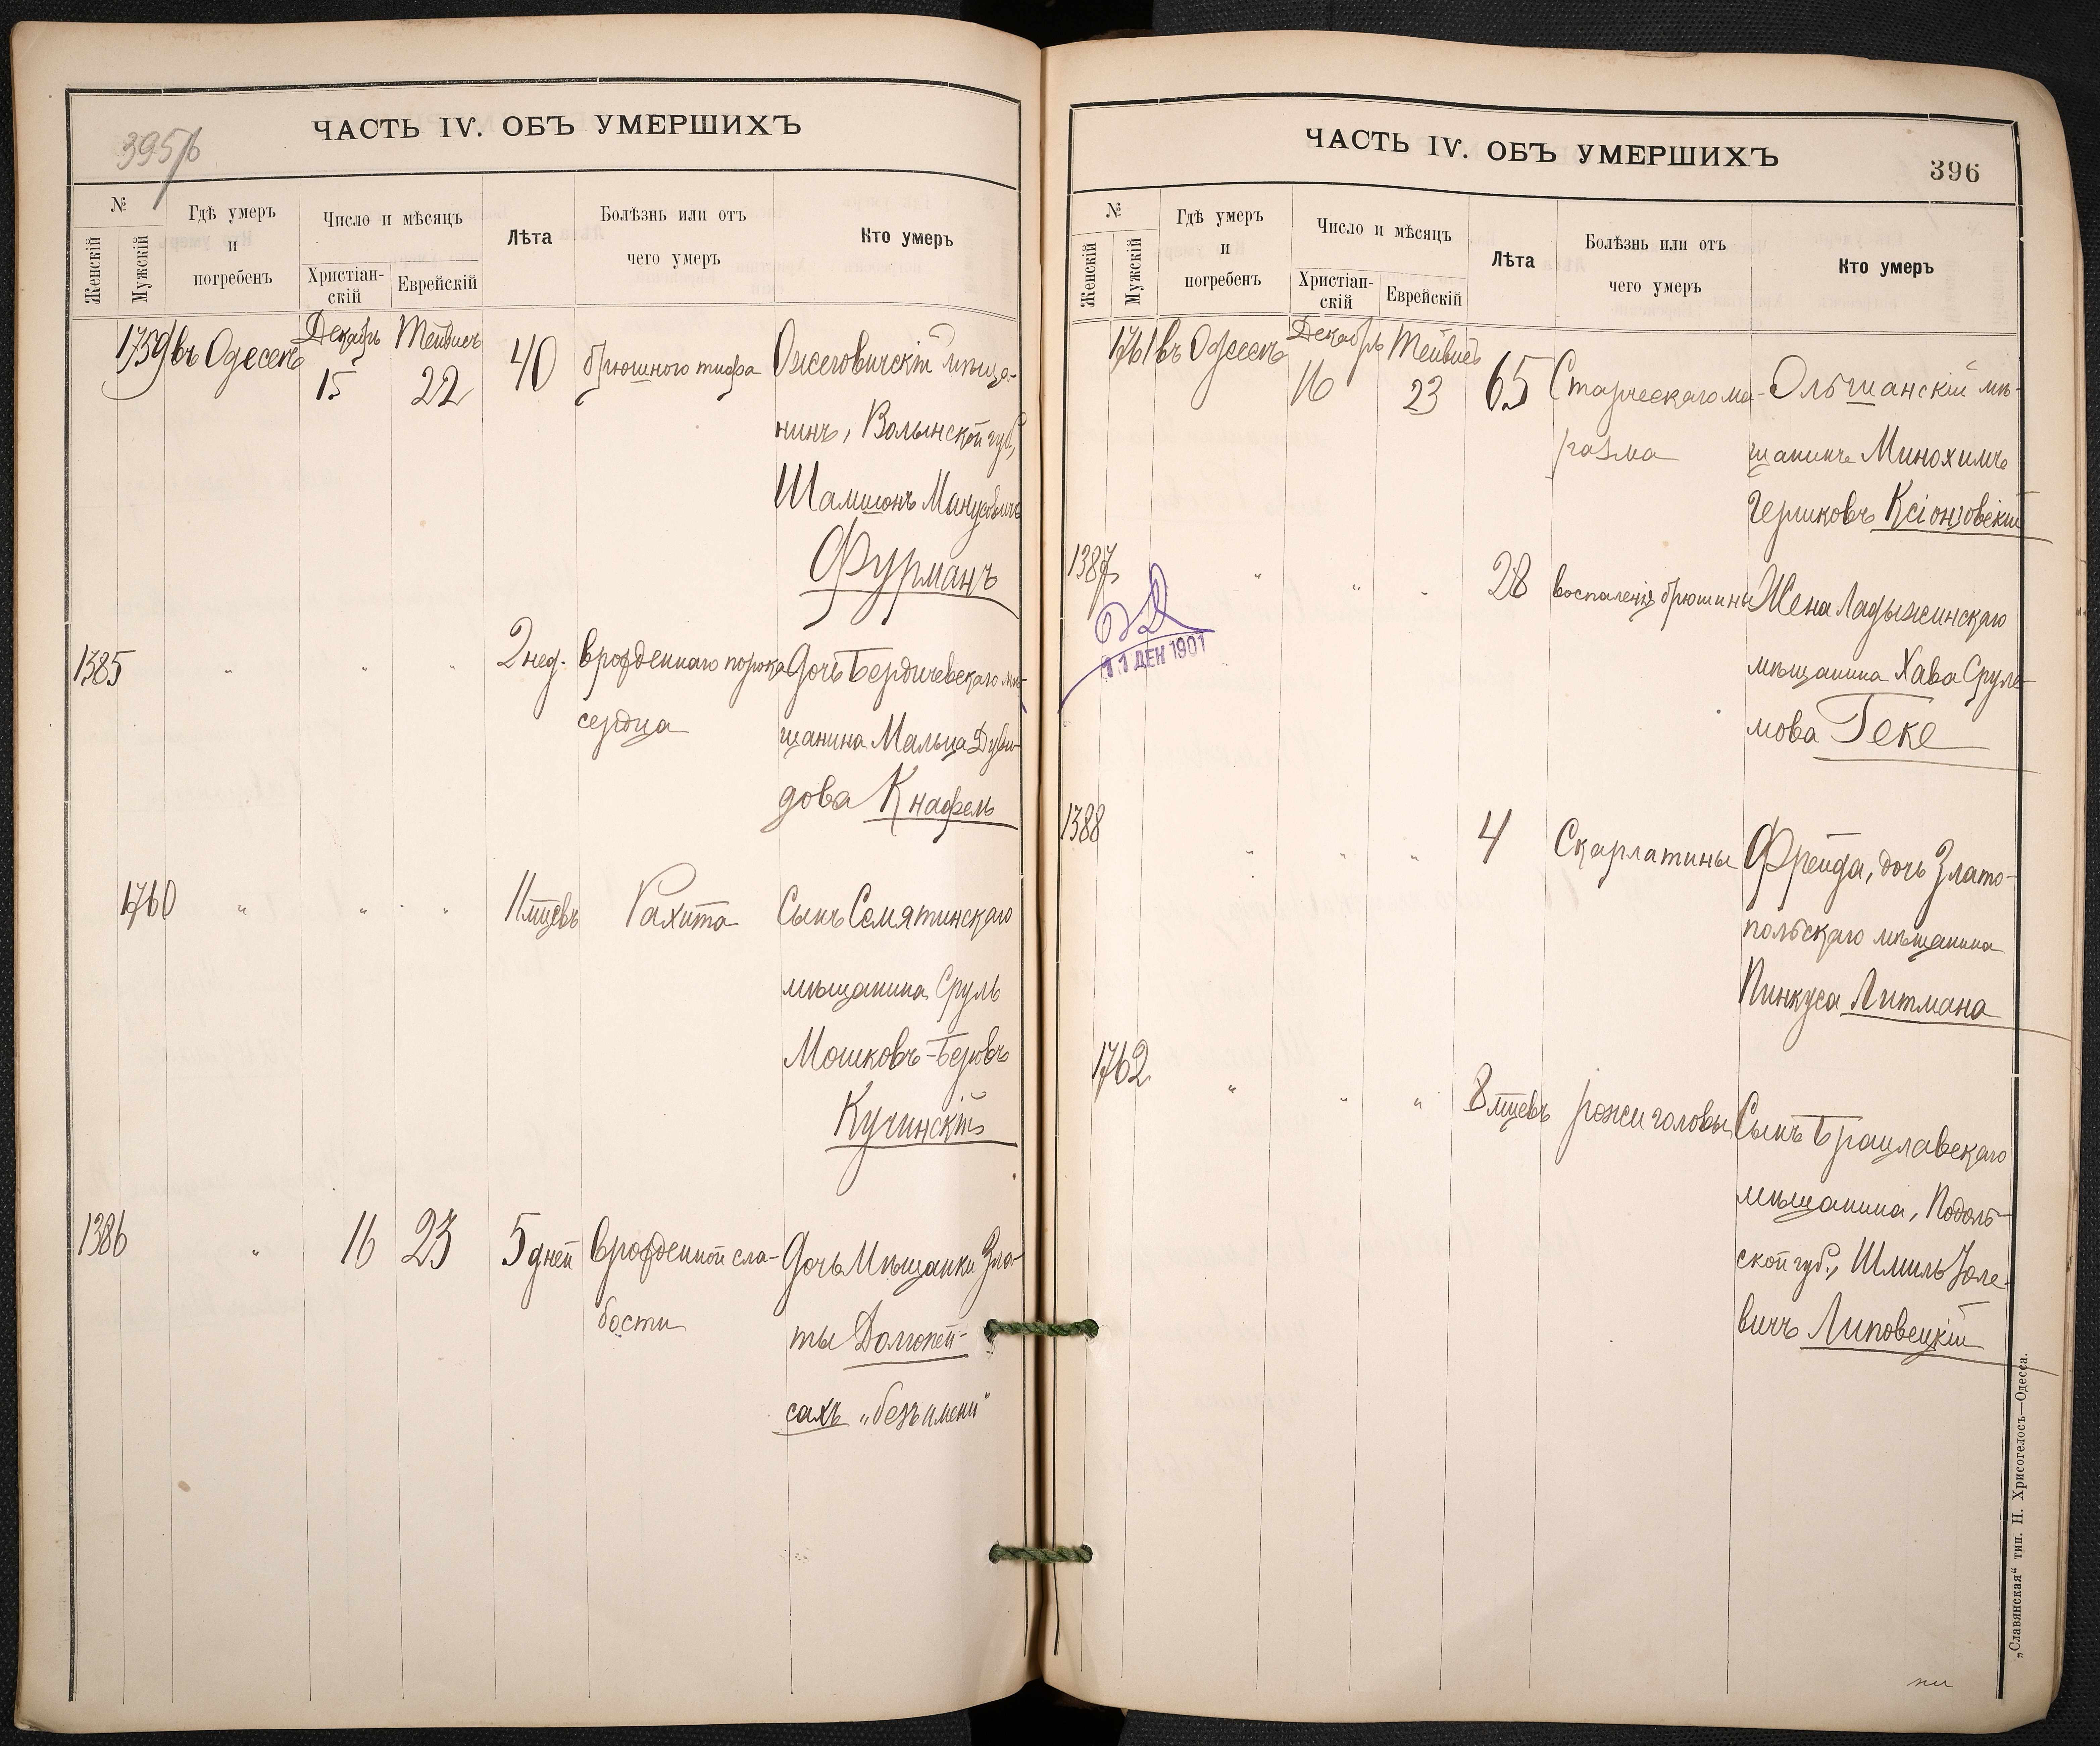 395/6
ЧАСТЬ IV. ОБЪ УМЕРШИХЪ
№
Женскій
Мужскій
Гдѣ умеръ
и
погребенъ
Число и мѣсяцъ
Христіан-
скій
Еврейскій
Лѣта
Болѣзнь или отъ
чего умеръ
Кто умеръ
1759 въ Одессѣ Декабрь 15 Тейвисъ 22 40 брюшного тифа Ожеговичскій мѣща-
нинъ, Волынской губ,
Шамшонъ Манусовичъ
Фурманъ
1385 " " " 2 нед. врожденнаго порока Дочь Бердичевскаго мѣ-
сердца щанина Мальца Дуви-
дова Кнафель
1760 " " " 11 мцевъ Рахита Сынъ Семятинскаго
мѣщанина Сруль
Мошковъ-Беровъ
Кучинскій
1386 " 16 23 5 дней врожденной сла- Дочь Мѣщанки Зла-
бости ты Долгопей-
сахъ „безъ имени"
ЧАСТЬ IV. ОБЪ УМЕРШИХЪ
396
№
Женскій
Мужскій
Гдѣ умеръ
и
погребенъ
Число и мѣсяцъ
Христіан-
скій
Еврейскій
Лѣта
Болѣзнь или отъ
чего умеръ
Кто умеръ
1761 въ Одессѣ Декабрь 16 Тейвисъ 23 65 Старческаго ма- Ольшанскій мѣ-
разма щанинъ Минохимъ
Гершковъ Ксіонзовскій
1387 " " " 28 воспаленія брюшины Жена Ладыжинскаго
11 ДЕК 1901
мѣщанина Хава Сруле-
мова Геке
1388 " " " 4 Скарлатины Фрейда, дочь Злато-
польскаго мѣщанина
Пинкуса Литмана
1762 " " " 8 мцевъ рожи головы Сынъ Брацлавскаго
мѣщанина, Подоль-
ской губ., Шмиль Іоле-
вичъ Липовецкій
„Славянская“ тип. Н. Хрисогелосъ—Одесса.